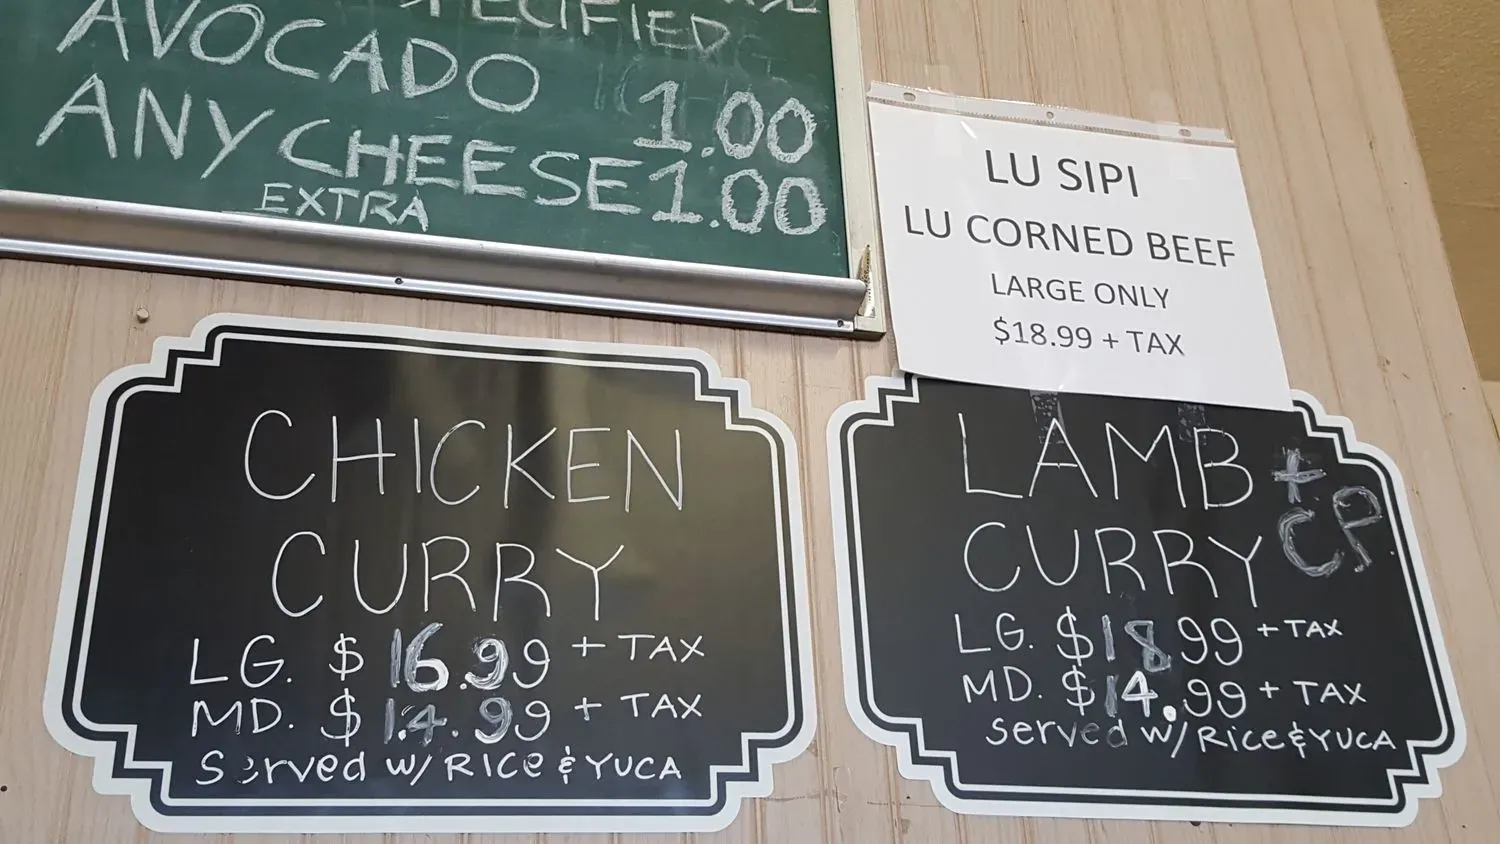 SPECIFIED
AVOCADO 1.00
ANY CHEESE 1.00
EXTRA
LU SIPI
LU CORNED BEEF
LARGE ONLY
$18.99 + TAX
CHICKEN
CURRY
LG. $16.99 + TAX
MD. $14.99 + TAX
Served w/ Rice & YUCA
LAMB +
CURRY CP
LG. $18.99 + TAX
MD. $14.99 + TAX
Served w/ Rice & YUCA